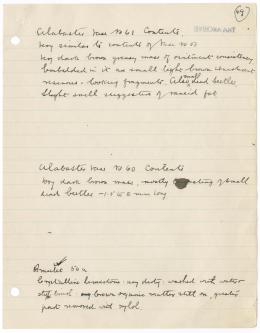 69
TAA ARCHIVE
Alabaster Vase No 61 Contents
Very similar to contents of Vase No 57
Very dark brown greasy mass of ointment consistency
Embedded in it are small light brown
resinous-looking fragments. Also small dead beetles
Slight smell suggestive of rancid fat
Alabaster Vase No 60 Contents
Very dark brown mass, mostly consisting of small
dead beetles - 1.5 to 2 mm long
Amulet 50 a
Crystalline limestone: very dirty: washed with water
still brown organic matter still on, greater
part removed with xylol.